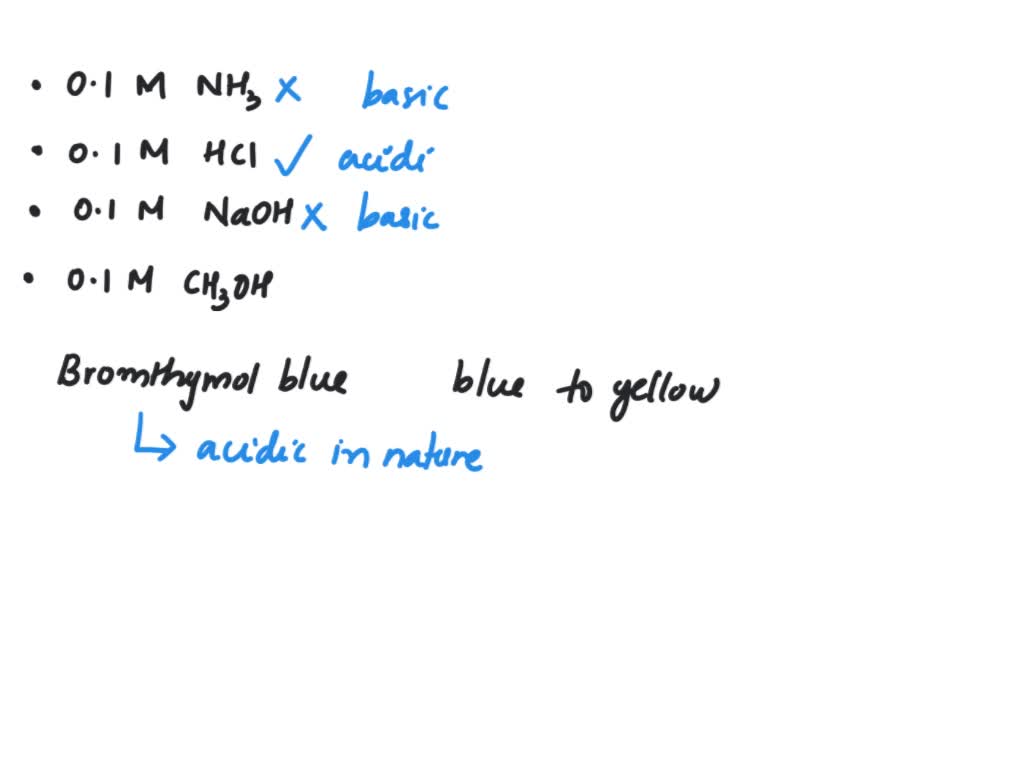 • 0.1 M NH3 x basic
• 0.1 M HCl ✓ acidi
• 0.1 M NaOH x basic
• 0.1 M CH3OH
Bromthymol blue blue to yellow
↳ acidic in nature